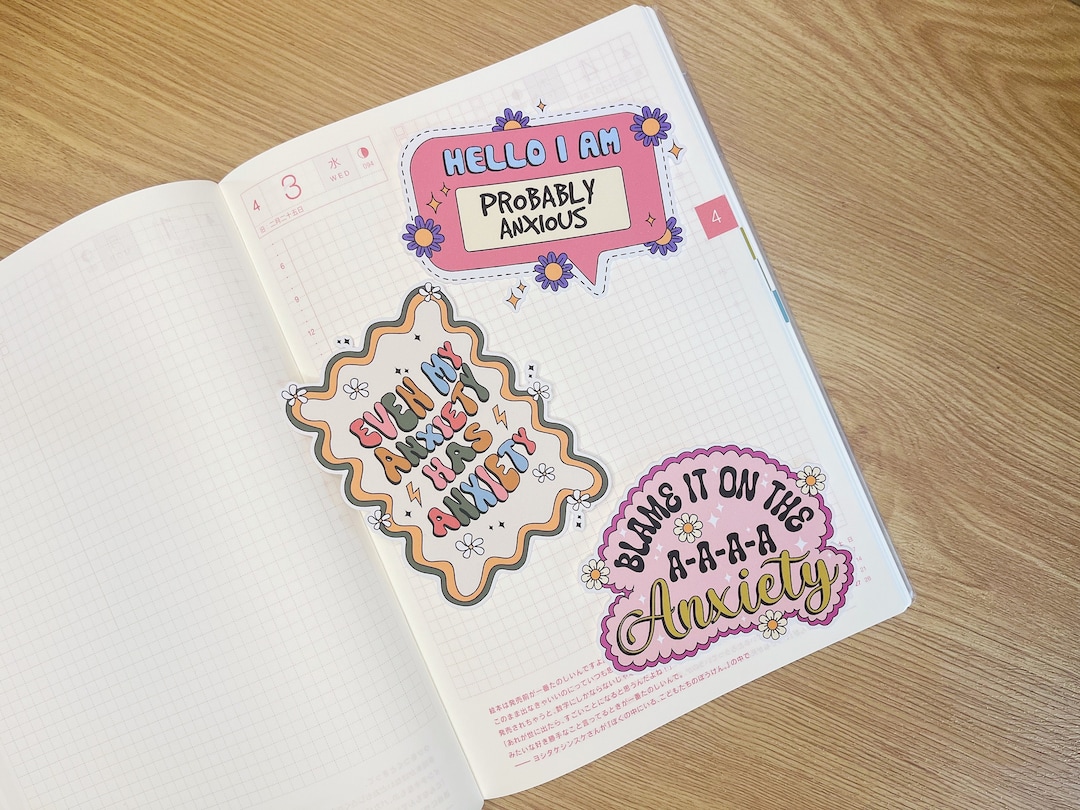 4
3
水
WED
094
旧 二月二十五日
6
9
12
HELLO I AM
PROBABLY
ANXIOUS
4
EVEN MY
ANXIETY
HAS
ANXIETY
BLAME IT ON THE
A-A-A-A
Anxiety
日
14
21
27 28
絵本は発売前が一番たのしいんですよ。
このまま出なきゃいいのにっていつも思
発売されちゃうと、数字にしかならないじゃ
「あれが世に出たら、すごいことになると思うんだよね!」
みたいな好き勝手なこと言ってるときが一番たのしいんで。
── ヨシタケシンスケさんが『ぼくの中にいる、こどもたちのぼうけん。』の中で